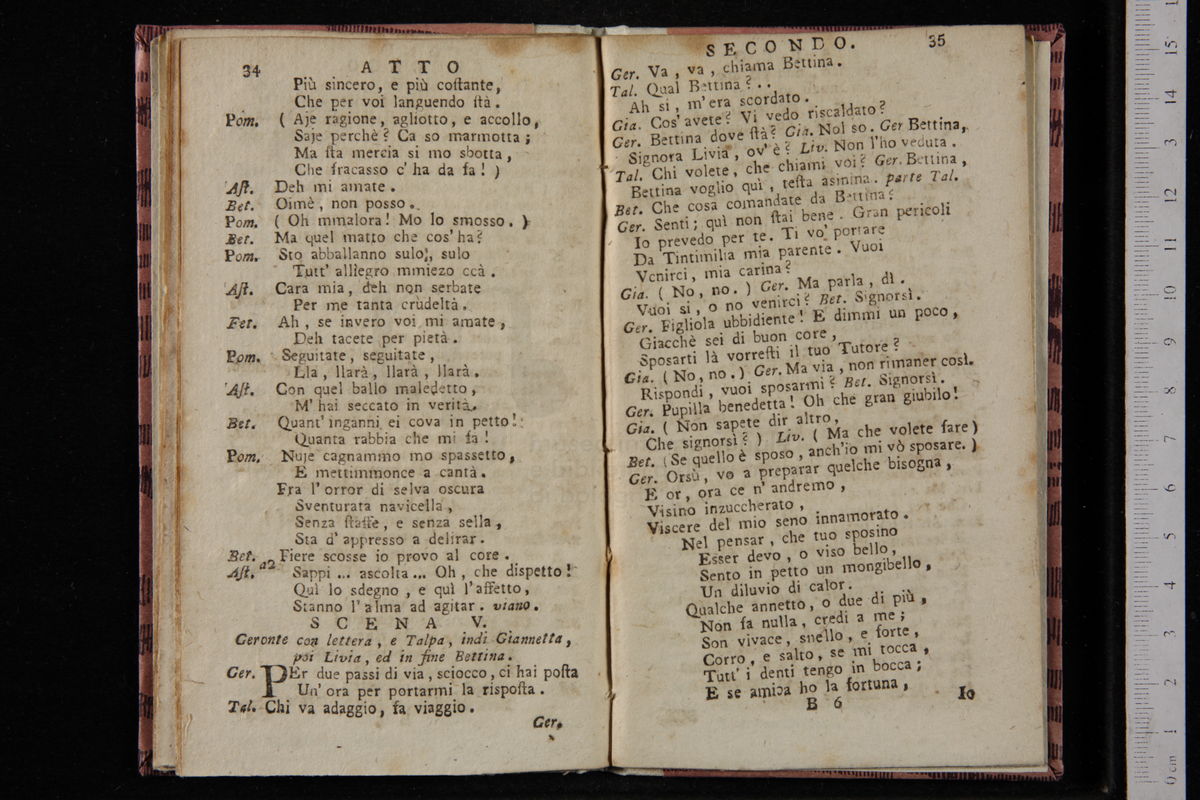 34 ATTO
Più sincero, e più coſtante,
Che per voi languendo ſtà.
Pom. ( Aje ragione, agliotto, e accollo,
Saje perchè? Ca so marmotta;
Ma ſta mercia si mo sbotta,
Che fracasso c' ha da fa! )
Aſt. Deh mi amate.
Bet. Oimè, non posso.
Pom. ( Oh mmalora! Mo lo smosso. )
Bet. Ma quel matto che cos' ha?
Pom. Sto abballanno sulo, sulo
Tutt' alliegro mmiezo ccà.
Aſt. Cara mia, deh non serbate
Per me tanta crudeltà.
Bet. Ah, se invero voi mi amate,
Deh tacete per pietà.
Pom. Seguitate, seguitate,
Lla, llarà, llarà, llarà.
Aſt. Con quel ballo maledetto,
M' hai seccato in verità.
Bet. Quant' inganni ei cova in petto!
Quanta rabbia che mi fa!
Pom. Nuje cagnammo mo spassetto,
E mettimmonce a cantà.
Fra l' orror di selva oscura
Sventurata navicella,
Senza ſtaffe, e senza sella,
Sta d' appresso a delirar.
Bet. Fiere scosse io provo al core.
Aſt. a2 Sappi ... ascolta ... Oh, che dispetto!
Quì lo sdegno, e quì l' affetto,
Stanno l' alma ad agitar. viano.
SCENA V.
Geronte con lettera, e Talpa, indi Giannetta,
poi Livia, ed in fine Bettina.
Ger. PEr due passi di via, sciocco, ci hai poſta
Un' ora per portarmi la risposta.
Tal. Chi va adaggio, fa viaggio.
Ger.
SECONDO. 35
Ger. Va, va, chiama Bettina.
Tal. Qual Bettina?..
Ah si, m' era scordato.
Gia. Cos' avete? Vi vedo riscaldato?
Ger. Bettina dove ſtà? Gia. Nol so. Ger Bettina,
Signora Livia, ov' è? Liv. Non l' ho veduta.
Tal. Chi volete, che chiami voi? Ger. Bettina,
Bettina voglio quì, teſta asinina. parte Tal.
Bet. Che cosa comandate da Bettina?
Ger. Senti; quì non ſtai bene. Gran pericoli
Io prevedo per te. Ti vo' portare
Da Tintimilia mia parente. Vuoi
Venirci, mia carina?
Gia. ( No, no. ) Ger. Ma parla, dì.
Vuoi si, o no venirci? Bet. Signorsì.
Ger. Figliola ubbidiente! E dimmi un poco,
Giacchè sei di buon core,
Sposarti là vorreſti il tuo Tutore?
Gia. ( No, no.) Ger. Ma via, non rimaner così.
Rispondi, vuoi sposarmi? Bet. Signorsì.
Ger. Pupilla benedetta! Oh che gran giubilo!
Gia. ( Non sapete dir altro,
Che signorsì? ) Liv. ( Ma che volete fare)
Bet. (Se quello è sposo, anch'io mi vò sposare. )
Ger. Orsù, vo a preparar quelche bisogna,
E or, ora ce n' andremo,
Visino inzuccherato,
Viscere del mio seno innamorato.
Nel pensar, che tuo sposino
Esser devo, o viso bello,
Sento in petto un mongibello,
Un diluvio di calor.
Qualche annetto, o due di più,
Non fa nulla, credi a me;
Son vivace, snello, e forte,
Corro, e salto, se mi tocca,
Tutt' i denti tengo in bocca;
E se amica ho la fortuna,
B 6 Io
15
14
13
12
11
10
9
8
7
6
5
4
3
2
1
0 cm